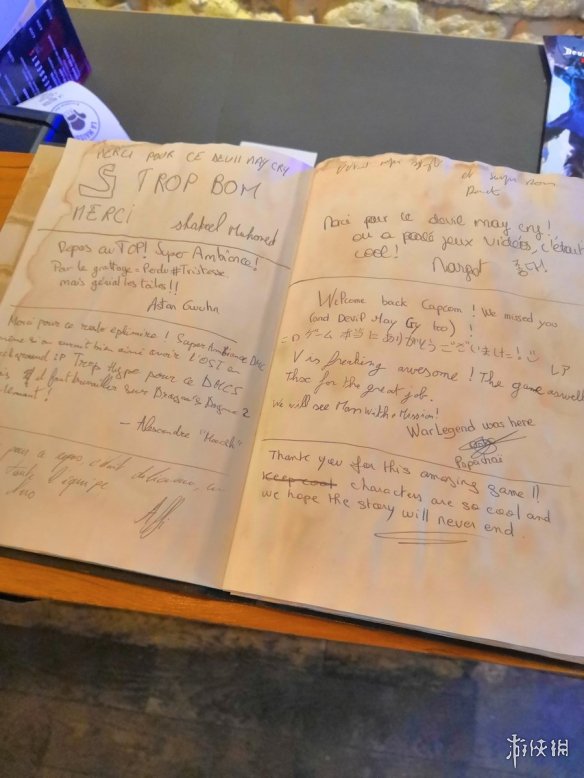 MERCI POUR CE DEVIL MAY CRY
5 TROP BOM
MERCI
Shakeel Muhomed
Repas au TOP! Super Ambiance!
Pour le grattage = Perdu #Tristesse
mais génial les tables!!
Merci pour ce resto éphémère ! Super Ambiance DMC
même si on aurait bien aimé avoir l'OST en
background :P Trop Hype pour ce DMC5
il faut travailler sur Dragon's Dogma 2
— Alexandre
délicieux, un
toute l'équipe
et surge
Merci pour ce devil may cry!
on a parlé jeux vidéos, c'était
cool!
Margot 좋다!
Welcome back Capcom! We missed you
(and Devil May Cry too) !
=D ゲーム本当にありがとうございました!
V is freaking awesome! The game aswell
Thxs for the great job.
We will see Man With a Mission!
WarLegend was here
Thank you for this amazing game !!
Keep cool characters are so cool and
we hope the story will never end
游侠网